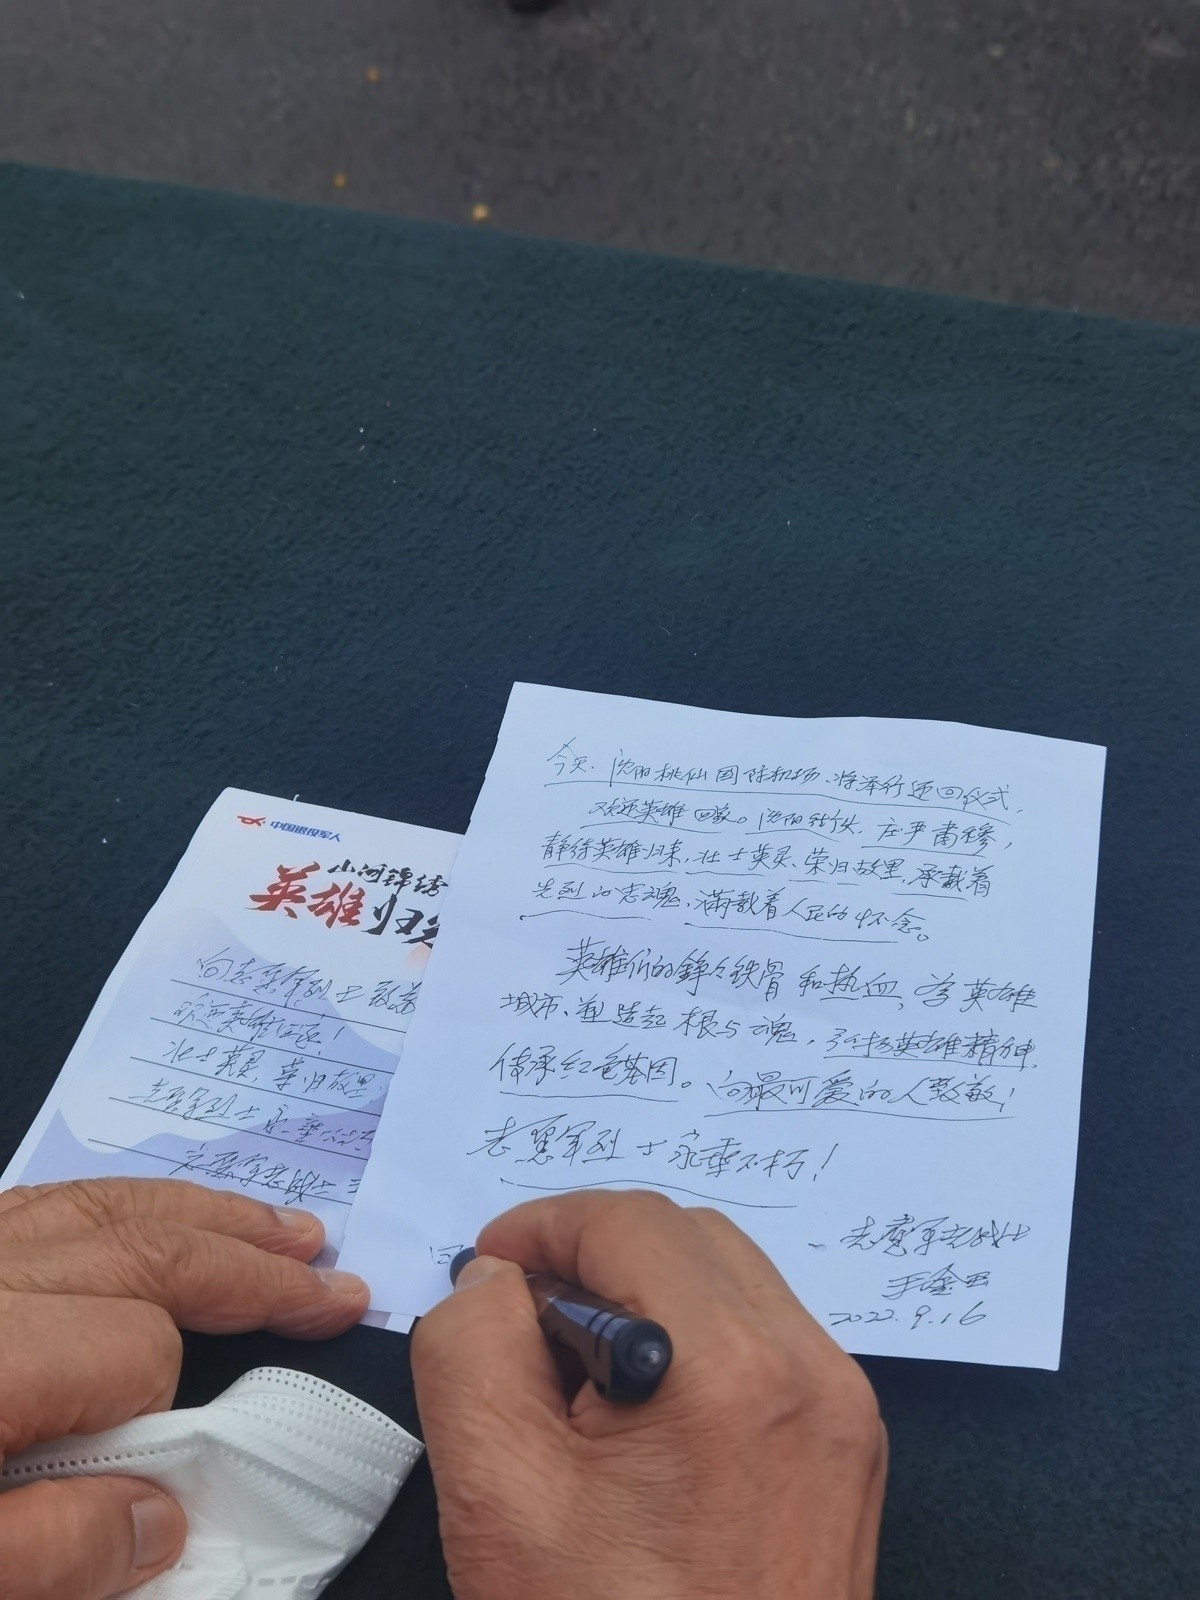 中国退役军人
山河锦绣
英雄归
向志愿军烈士致敬
欢迎英雄回家!
壮士英灵,荣归故里
志愿军烈士永垂
志愿军老战士
今天、沈阳桃仙国际机场、将举行迎回仪式,
欢迎英雄回家。沈阳站,庄严肃穆,
静待英雄归来,壮士英灵、荣归故里,承载着
先烈的忠魂,满载着人民的怀念。
英雄们的铮々铁骨和热血,为英雄
城市、塑造起根与魂,弘扬英雄精神,
传承红色基因。向最可爱的人致敬!
志愿军烈士永垂不朽!
志愿军老战士
2022.9.16